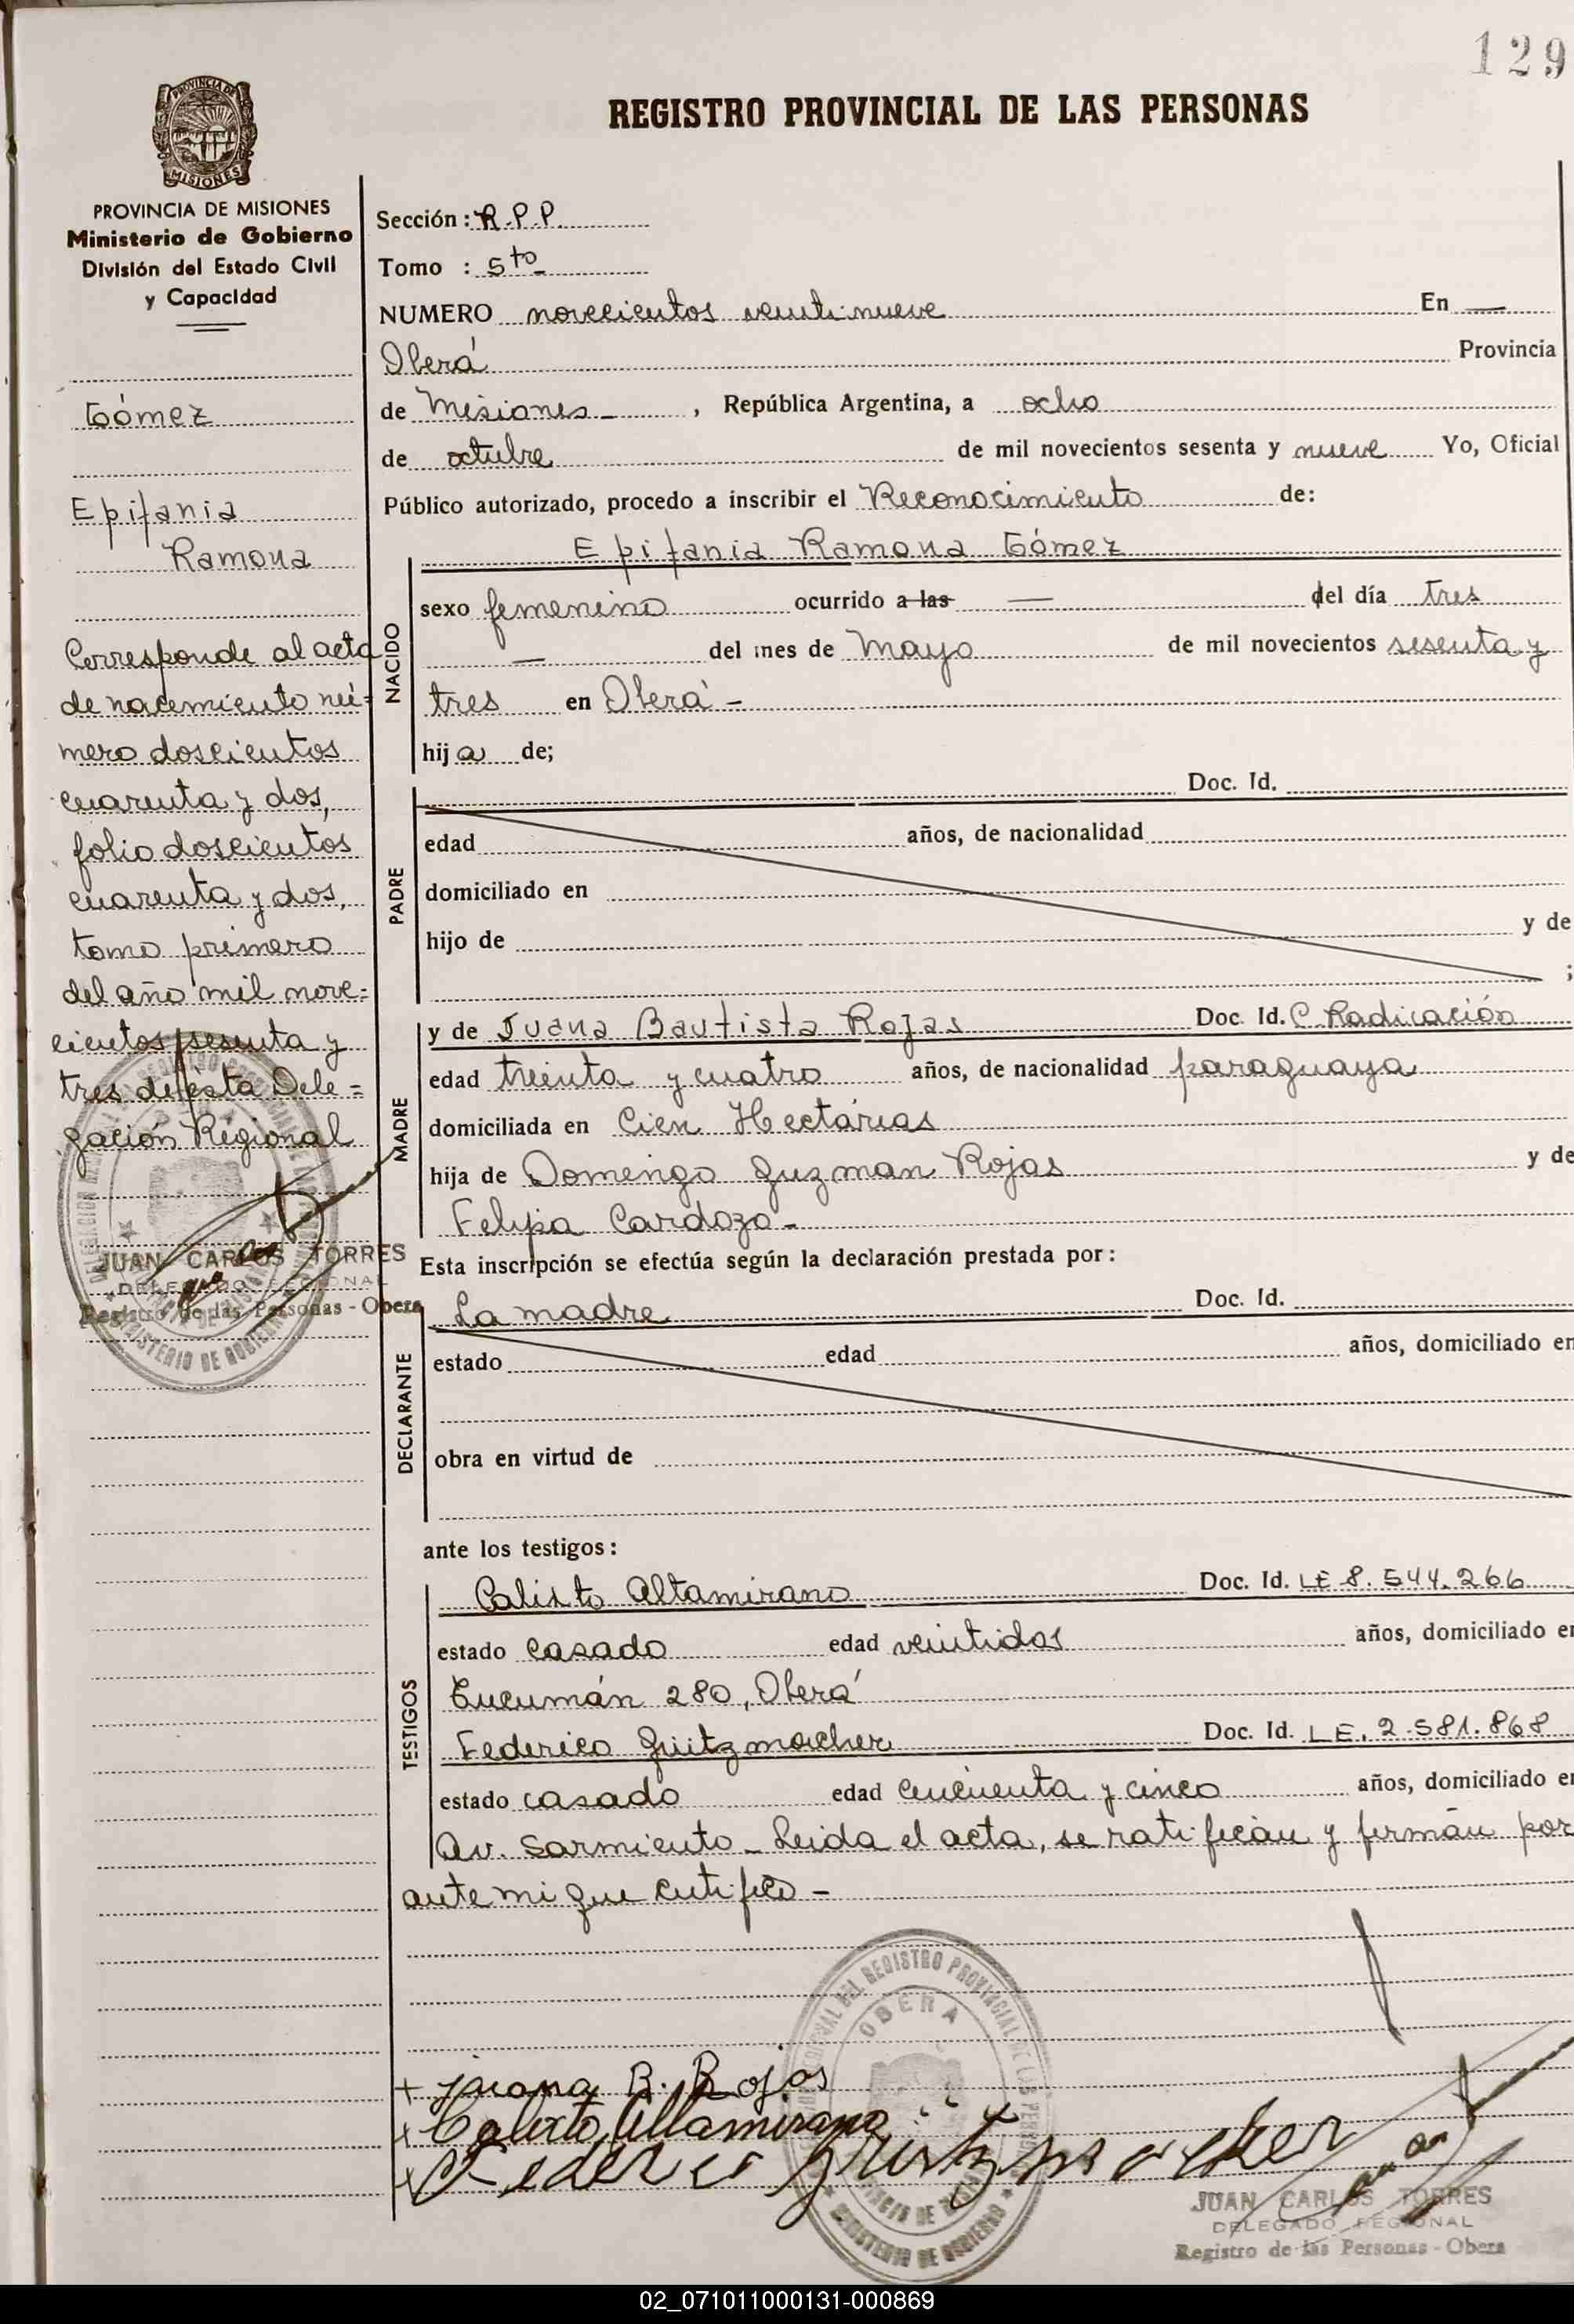 129
REGISTRO PROVINCIAL DE LAS PERSONAS
PROVINCIA DE
MISIONES
PROVINCIA DE MISIONES
Ministerio de Gobierno
División del Estado Civil
y Capacidad
Gómez
Epifania
Ramona
Corresponde al acta
de nacimiento nú-
mero doscientos
cuarenta y dos,
folio doscientos
cuarenta y dos,
tomo primero
del año mil nove-
cientos sesenta y
tres de ésta Dele-
gación Regional
JUAN CARLOS TORRES
DELEGADO REGIONAL
Registro de las Personas - Obera
Sección: R.P.P.
Tomo : 5to
NUMERO novecientos veintinueve En —
Oberá Provincia
de Misiones - , República Argentina, a ocho
de octubre de mil novecientos sesenta y nueve Yo, Oficial
Público autorizado, procedo a inscribir el Reconocimiento de:
NACIDO
Epifania Ramona Gómez
sexo femenino ocurrido a las — del día tres
— del mes de Mayo de mil novecientos sesenta y
tres en Oberá -
hija de;
PADRE
Doc. Id.
edad años, de nacionalidad
domiciliado en
hijo de y de
;
MADRE
y de Juana Bautista Rojas Doc. Id. C. Radicación
edad treinta y cuatro años, de nacionalidad paraguaya
domiciliada en Cien Hectáreas
hija de Domingo Guzman Rojas y de
Felipa Cardozo -
Esta inscripción se efectúa según la declaración prestada por:
DECLARANTE
La madre Doc. Id.
estado edad años, domiciliado en
obra en virtud de
ante los testigos:
TESTIGOS
Calixto Altamirano Doc. Id. LE 8.544.266
estado casado edad veintidos años, domiciliado en
Tucumán 280, Oberá
Federico Grützmacher Doc. Id. LE. 2.581.868
estado casado edad cincuenta y cinco años, domiciliado en
Av. Sarmiento - Leida el acta, se ratifican y firman por
ante mi que certifico -
REGISTRO PROVINCIAL DE LAS PERSONAS
OBERA
MINISTERIO DE GOBIERNO
+ Juana B. Rojas
x Calixto Altamirano
x Federico Grützmacher
JUAN CARLOS TORRES
DELEGADO REGIONAL
Registro de las Personas - Obera
02_071011000131-000869